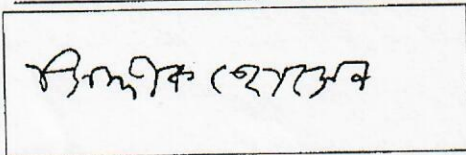 সিদ্দীক হোসেন